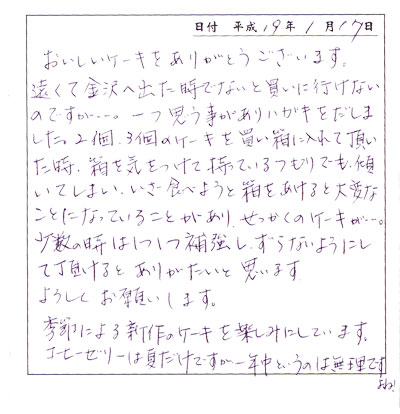 日付 平成 19年 1月 17日
おいしいケーキをありがとうございます。
遠くて金沢へ出た時でないと買いに行けない
のですが…。一つ思う事がありハガキをだしま
した。2個、3個のケーキを買い箱に入れて頂い
た時、箱を気をつけて持っているつもりでも、傾
いてしまい、いざ食べようと箱をあけると大変な
ことになっていることがあり、せっかくのケーキが…。
少数の時は1つ1つ補強し、ずらないようにし
て頂けるとありがたいと思います
よろしくお願いします。
季節による新作のケーキを楽しみにしています。
コーヒーゼリーは夏だけですが一年中というのは無理です
よね!